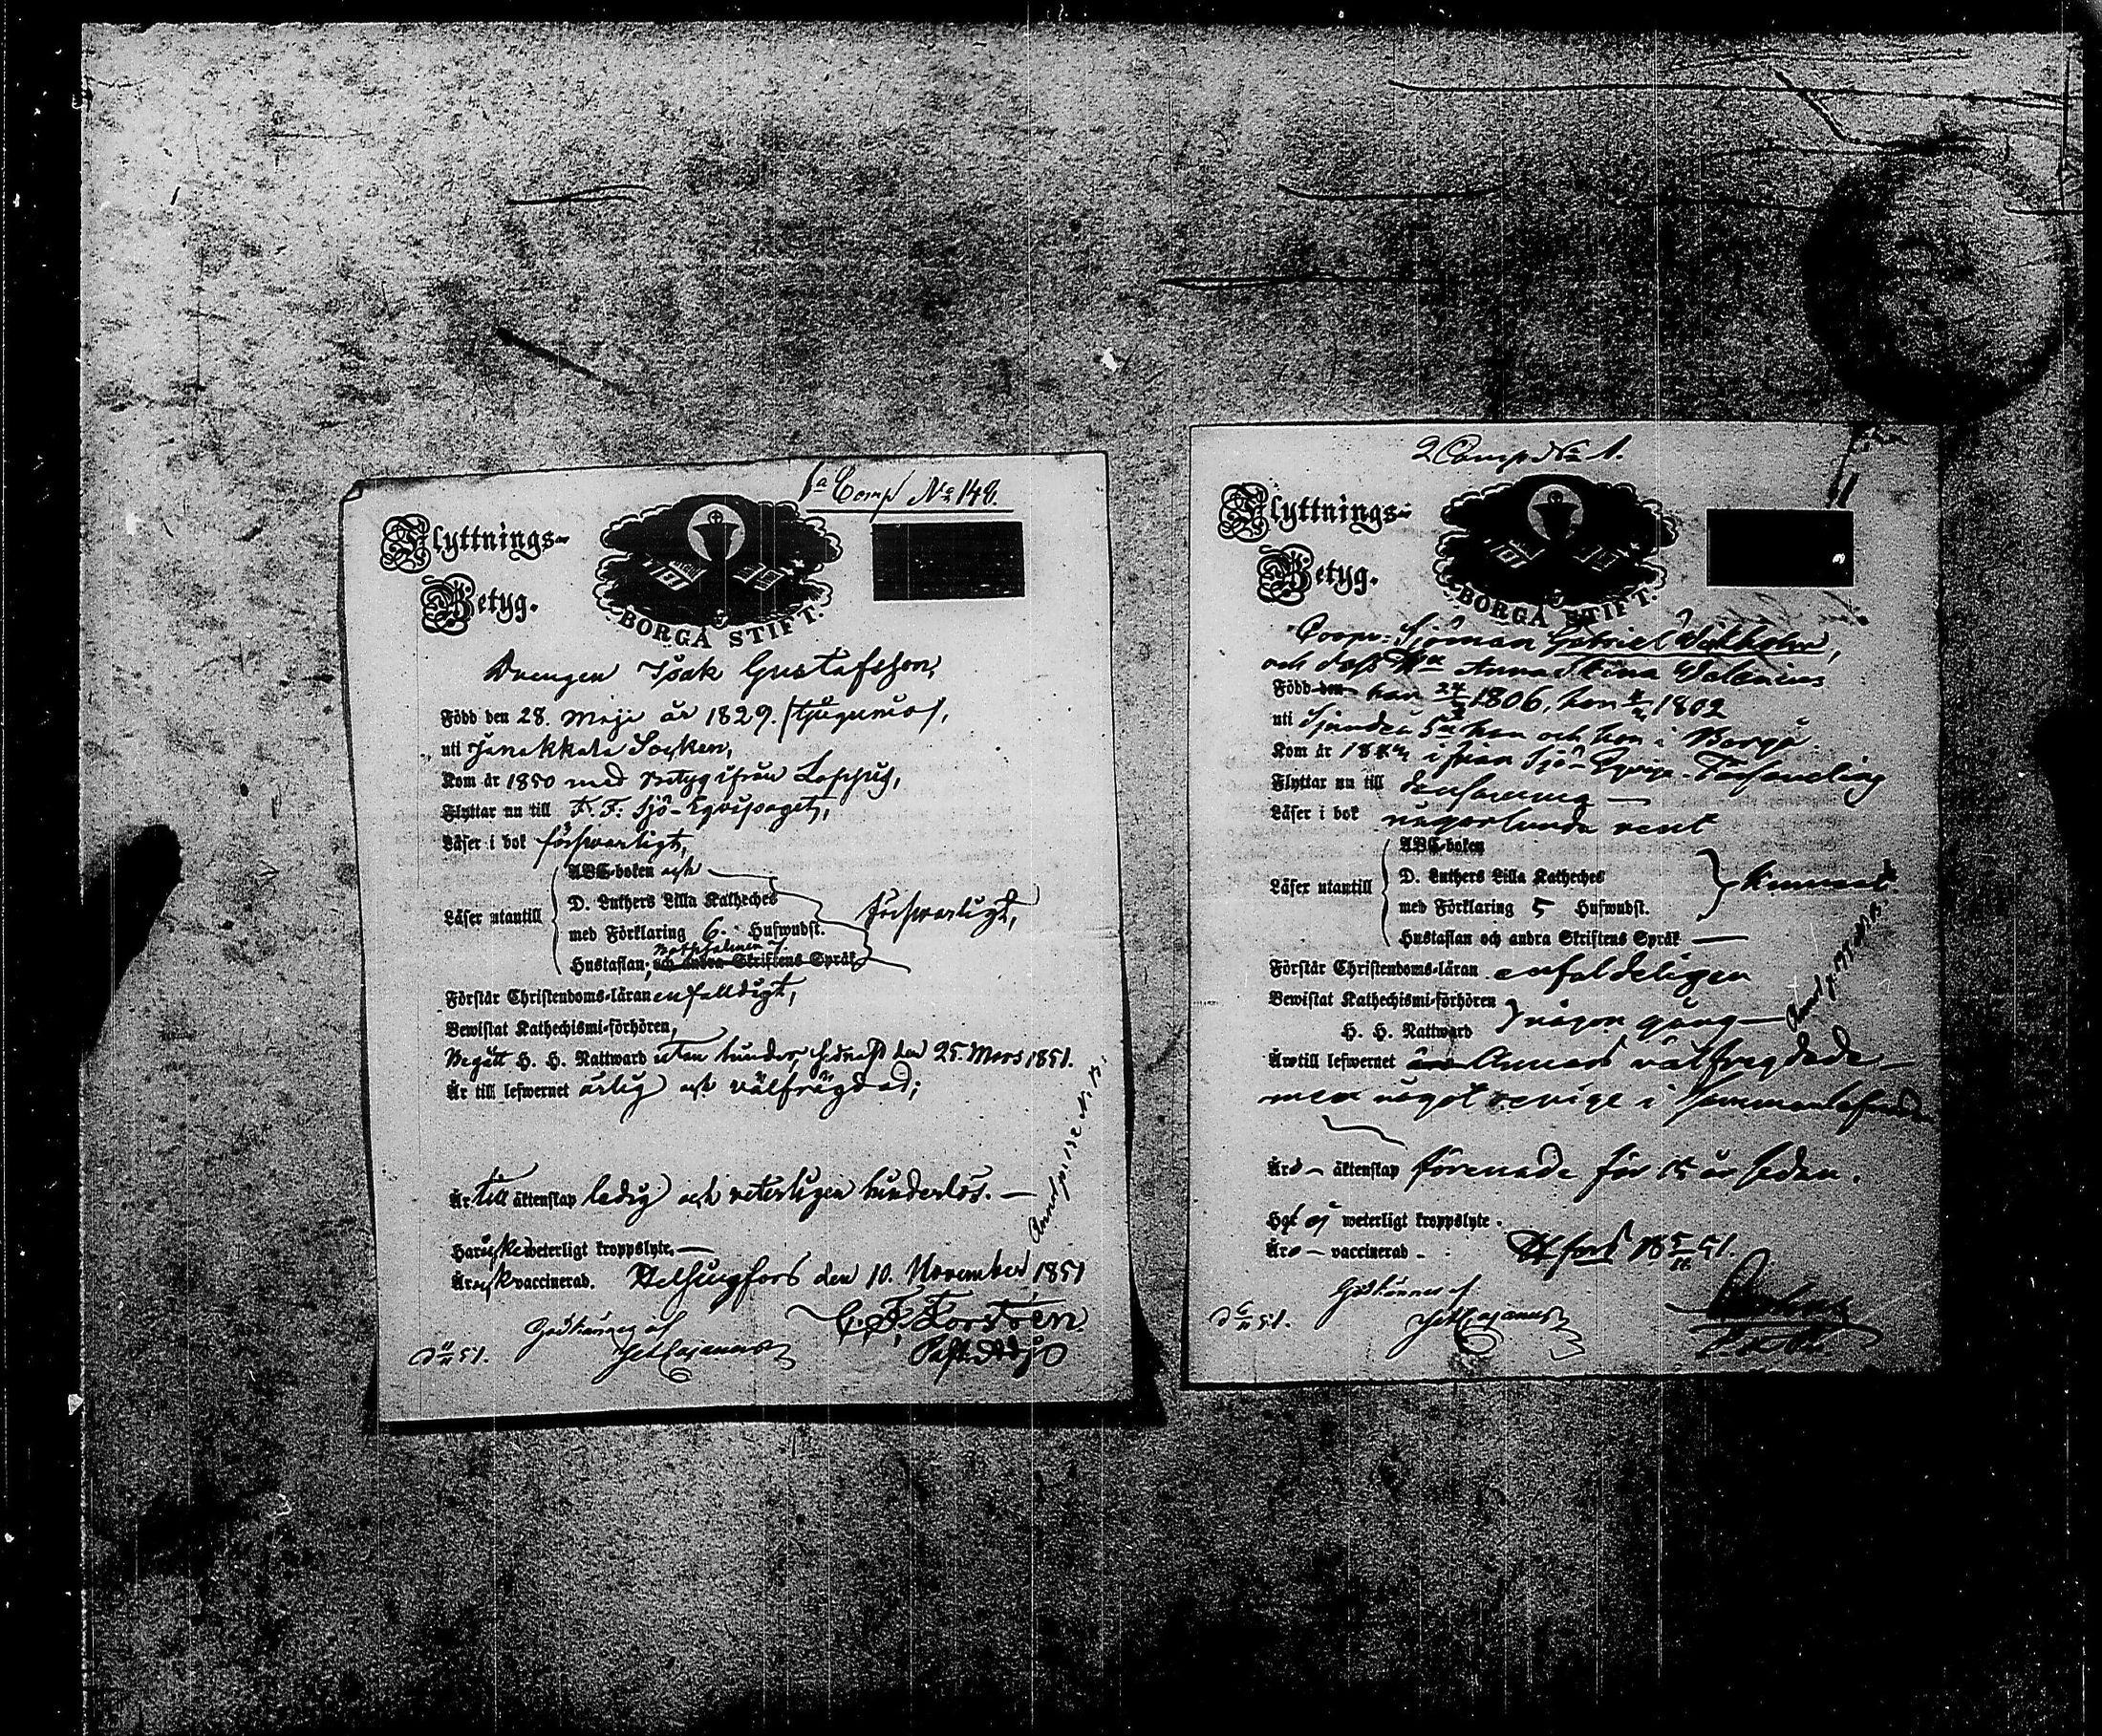 1a Comp No 148.
Flyttnings-
Betyg.
BORGÅ STIFT.
Drengen Isak Gustafsson,
Född den 28. Maji år 1829. (tjugunio),
uti Janakkala Socken,
Kom år 1850 med betyg ifrån Loppis,
Flyttar nu till K. F. Sjö-Equipaget,
Läser i bok försvarligt,
ABC-boken och
D. Luthers Lilla Katheches
Läser utantill
med Förklaring 6. Hufwudst.
försvarligt,
Botpsalmen
Hustaflan; och andra Skriftens Språk
Förstår Christendoms-läran enfalldigt,
Bewistat Kathechismi-förhören,
Begått H. H. Nattward utan hinder, sednast den 25. Mars 1851.
Är till lefwernet ärlig och välfrägdad;
Är till äktenskap ledig och veterligen hinderlös.
Har icke weterligt kroppslyte.
Är vaccinerad. Helsingfors den 10. November 1851
C. F. Forstén
Past. Adj.
Godkännes af
51.
2 Comp No 1.
Flyttnings-
Betyg.
BORGÅ STIFT.
Sjöman Gabriel
och dess Anna Stina Walenius
Född den han 1806, hon 1802
uti Sjundeå Sn han och hon i Borgå
Kom år ifrån Sjö Equip. Församling
Flyttar nu till
Läser i bok någorlunda rent
ABC-boken
D. Luthers Lilla Katheches
Läser utantill
med Förklaring 5 Hufwudst.
Hustaflan och andra Skriftens Språk
Förstår Christendoms-läran enfaldeligen
Bewistat Kathechismi-förhören
H. H. Nattward
någon gång
Äro till lefwernet annars välfrägdade
men något oenige i
Äro äktenskap förenade för 15 år sedan.
Haf ej weterligt kroppslyte.
Äro vaccinerad
H:fors
Godkännes af
51.